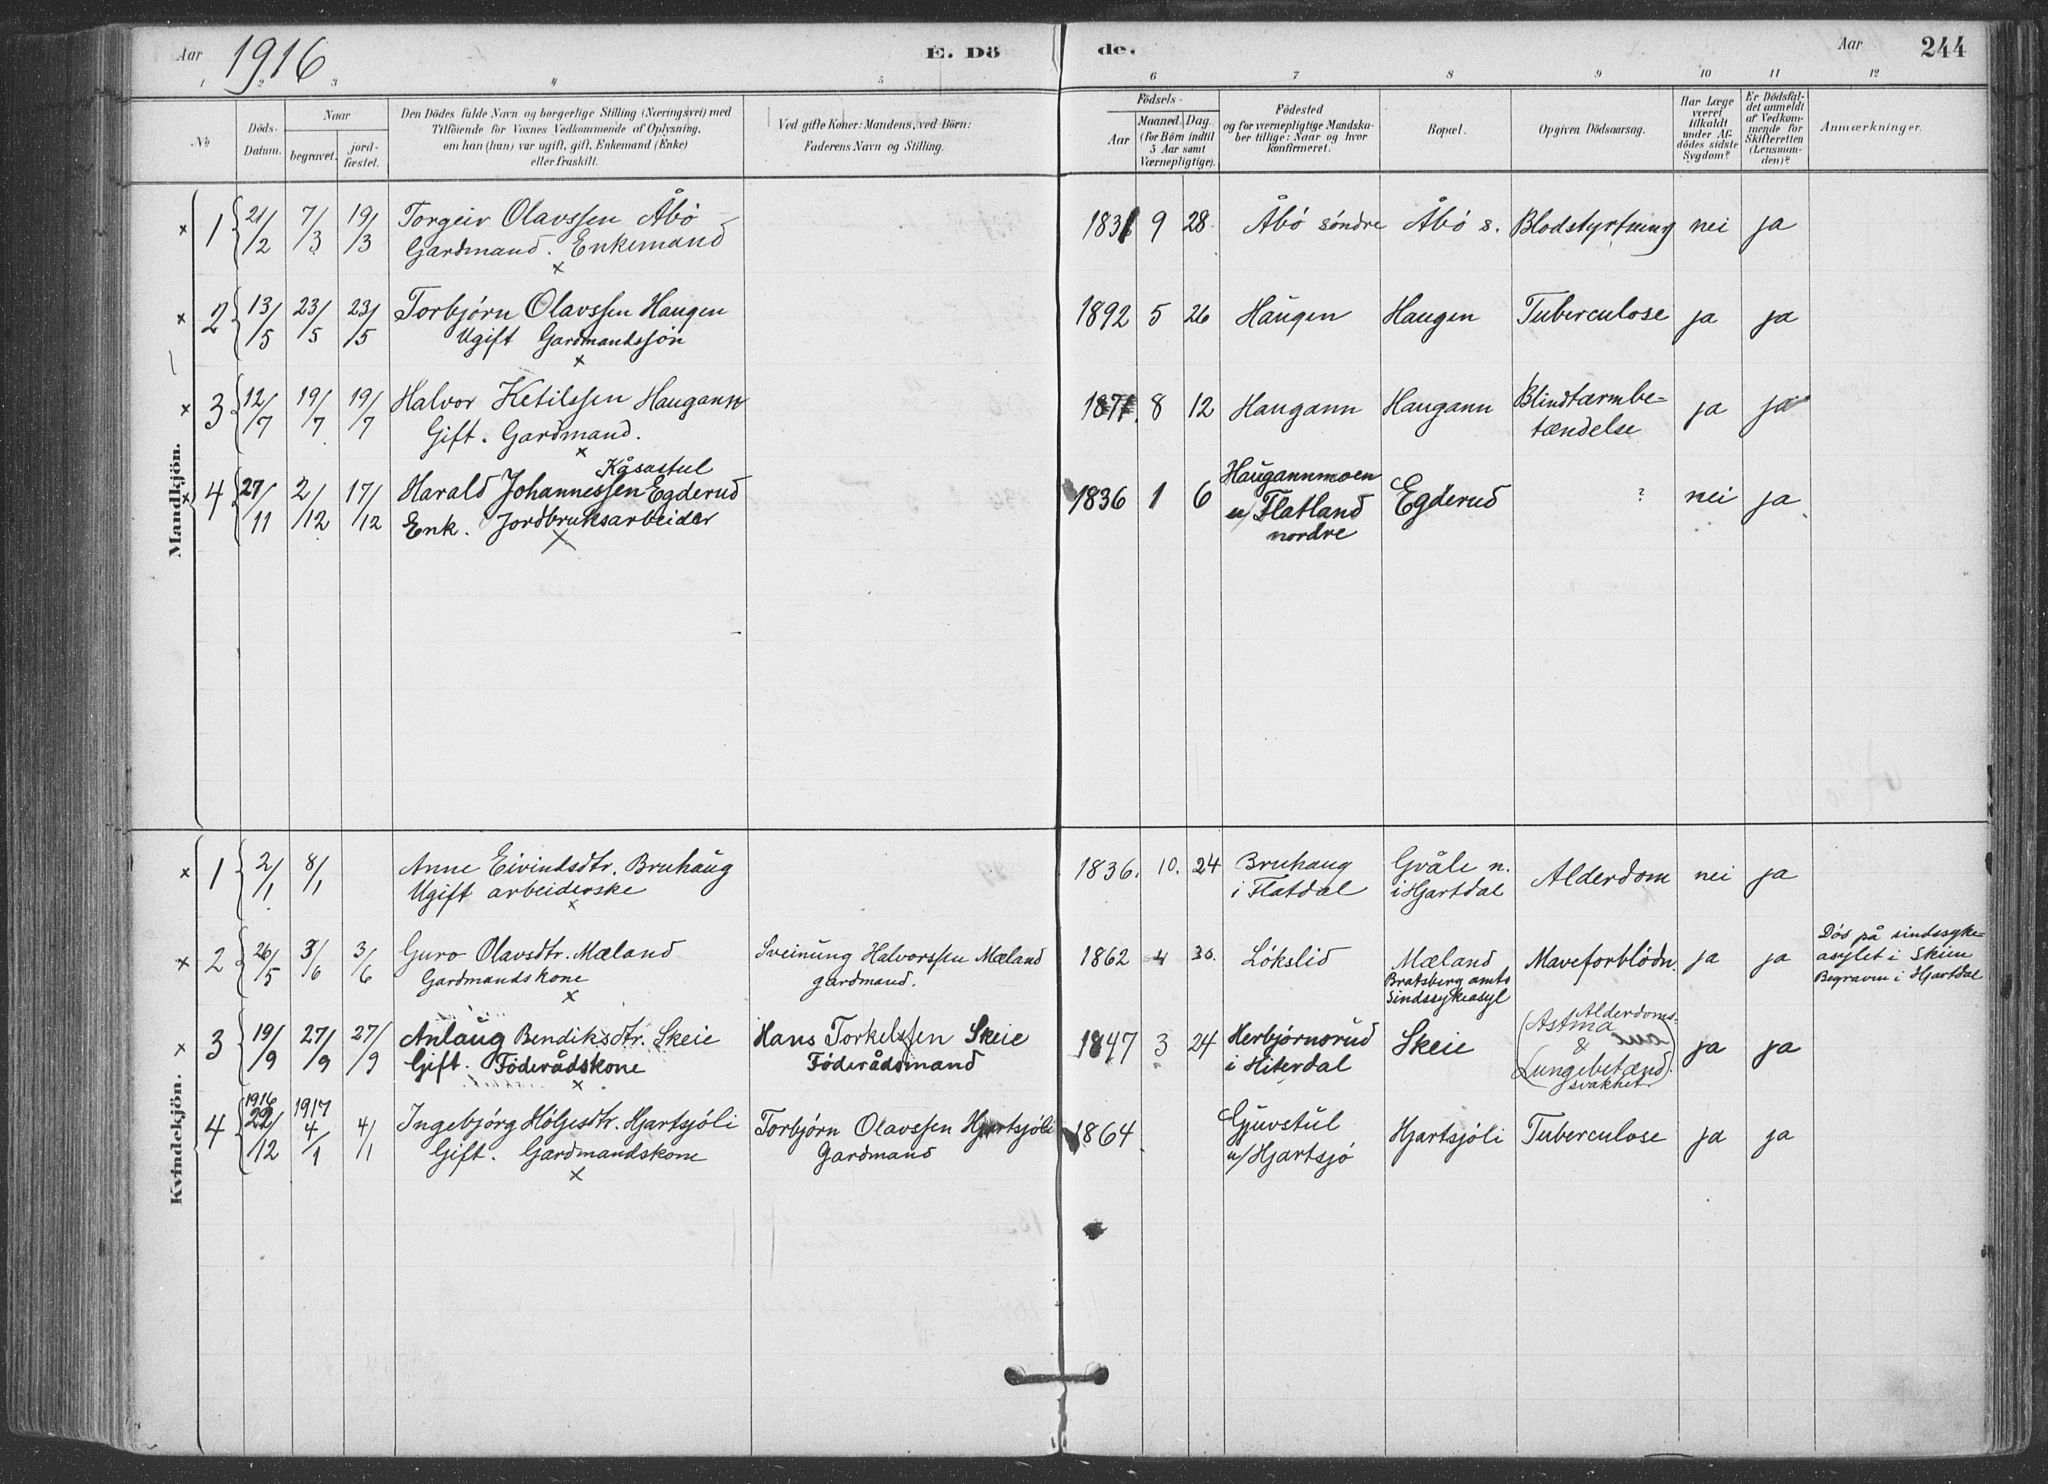 Aar 1916 E. Dö de. Aar 244
1 2 3 4 5 6 7 8 9 10 11 12
No
Döds-
Datum.
Naar
begravet.
jord-
fæstet.
Den Dödes fulde Navn og borgerlige Stilling (Næringsvei) med
Tilföiende for Voxnes Vedkommende af Oplysning,
om han (hun) var ugift, gift, Enkemand (Enke)
eller fraskilt.
Ved gifte Koner: Mandens, ved Börn:
Faderens Navn og Stilling.
Födsels-
Aar
Maaned. Dag
(for Börn indtil
5 Aar samt
Værnepligtige).
Födested
og for værnepligtige Mandska-
ber tillige: Naar og hvor
konfirmeret.
Bopæl.
Opgiven Dödsaarsag.
Har Læge
været
tilkaldt
under Af-
dödes sidste
Sygdom?
Er Dödsfal-
det anmeldt
af Vedkom-
mende for
Skifteretten
(Lensman-
den)?
Anmærkninger.
Mandkjön.
× 1 21/2 7/3 19/3 Torgeir Olavssen Åbö 1831 9 28 Åbö söndre Åbö s. Blodstyrtning nei ja
Gardmand. Enkemand
×
× 2 13/5 23/5 23/5 Torbjörn Olavssen Haugen 1892 5 26 Haugen Haugen Tuberculose ja ja
Ugift Gardmandssön
×
× 3 12/7 19/7 19/7 Halvor Ketilssen Haugann 1871. 8 12 Haugann Haugann Blindtarmbe-
tændelse ja ja
Gift. Gardmand.
×
Kåsastul
× 4 27/11 2/12 17/12 Harald Johannessen Egderud 1836 1 6 Haugannmoen
u/ Flatland
nordre Egderud ? nei ja
Enk. Jordbruksarbeider
×
Kvindekjön.
× 1 2/1 8/1 Anne Eivindsdtr. Bruhaug 1836. 10. 24 Bruhaug
i Flatdal Gvåle n.
i Hjartdal Alderdom nei ja
Ugift arbeiderske
×
× 2 26/5 3/6 3/6 Guro Olavsdtr. Mæland Sveinung Halvorssen Mæland
gardmand. 1862 4 30. Lökslid Mæland
Bratsberg amts
Sindssykeasyl Maveforblödn. ja ja Död på sindssyke-
asylet i Skien
Begraven i Hjartdal
Gardmandskone
×
× 3 19/9 27/9 27/9 Anlaug Bendiksdtr. Skeie Hans Torkelssen Skeie
Föderådsmand 1847 3 24 Herbjörnsrud
i Hiterdal Skeie Alderdoms-
(Astma
&
Lungebetænd.)
svakhet ja ja
Gift. Föderådskone
×
4 1916 22/12 1917 4/1 4/1 Ingebjörg Höljesdtr. Hjartsjöli Torbjörn Olavssen Hjartsjöli
Gardmand 1864 Gjuvstul
u/ Hjartsjö Hjartsjöli Tuberculose ja ja
Gift. Gardmandskone
×